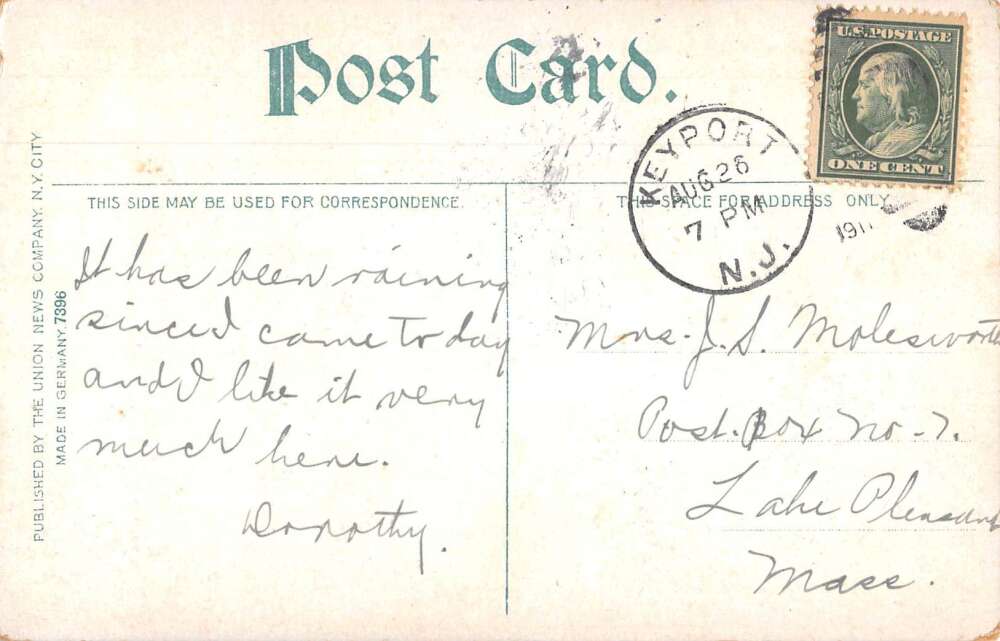 Post Card.
U.S. POSTAGE
ONE CENT
KEYPORT
AUG 26
7 PM
N.J.
191
THIS SIDE MAY BE USED FOR CORRESPONDENCE.
THIS SPACE FOR ADDRESS ONLY
It has been raining
since I came to day
and I like it very
much here.
Dorothy.
Mrs. J. S. Molesworth
Post. Box No-7.
Lake Pleasant
Mass.
PUBLISHED BY THE UNION NEWS COMPANY, N.Y. CITY
MADE IN GERMANY. 7396